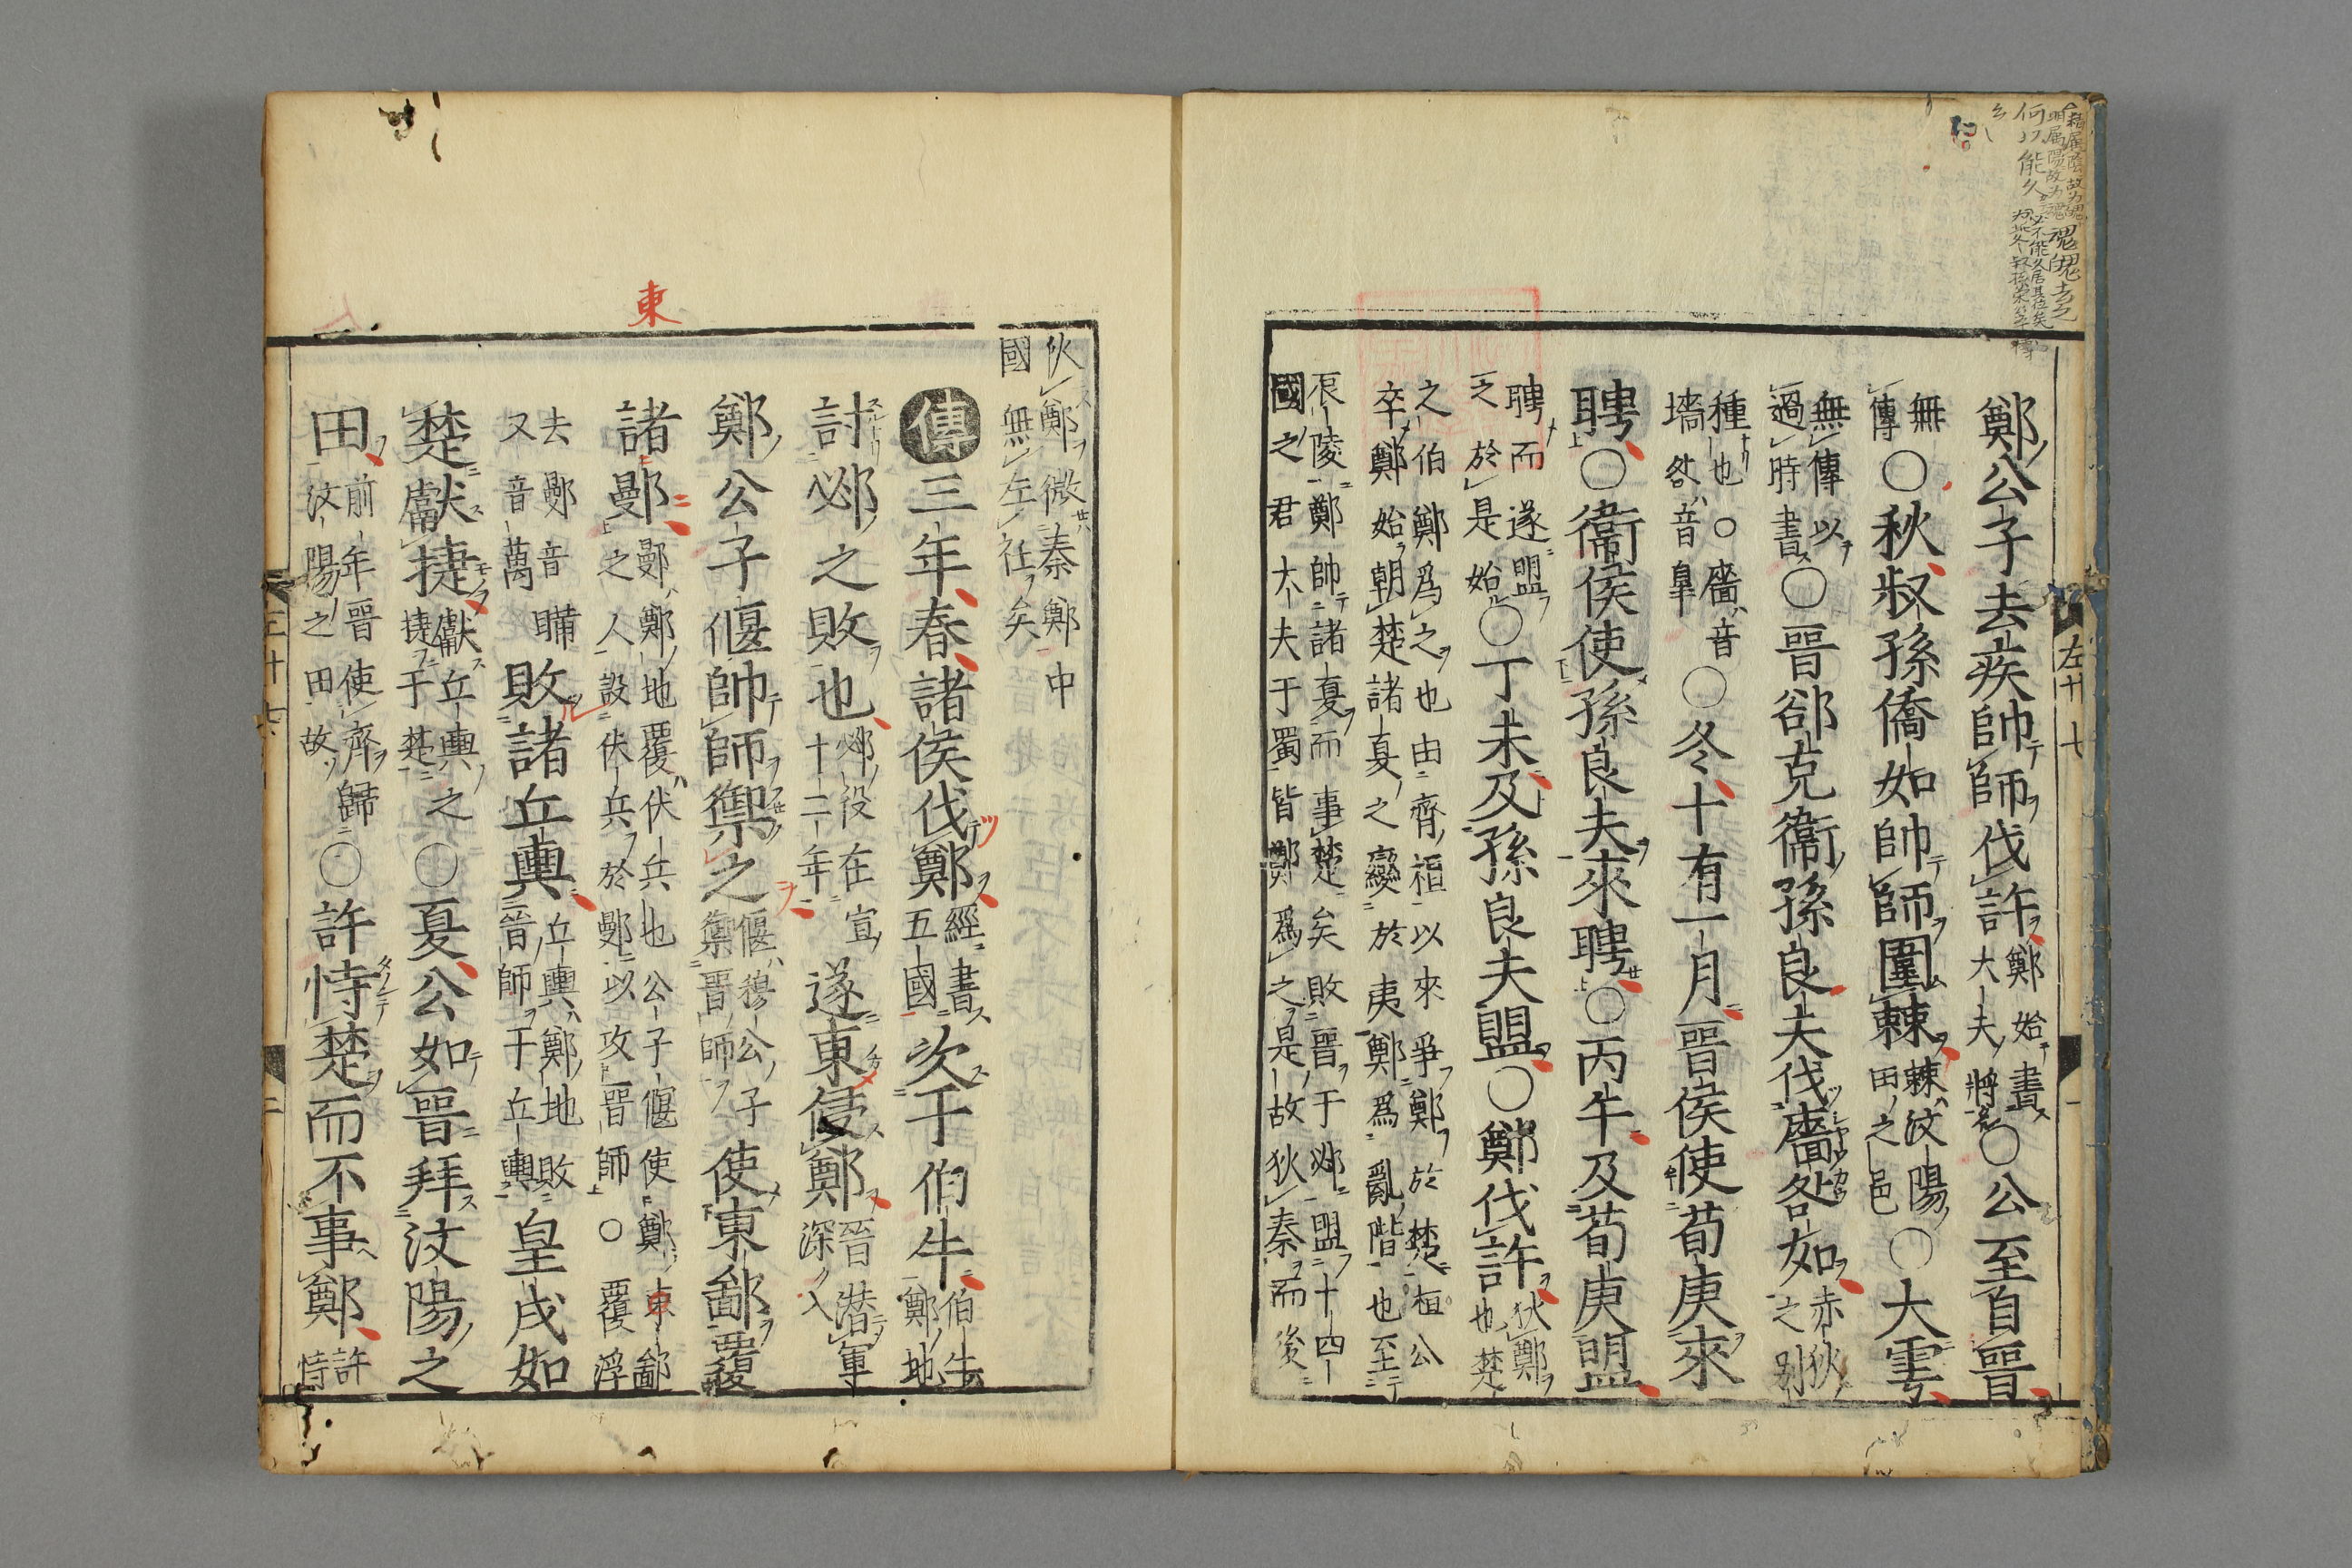 左十七
一
鄭公子去疾帥師伐許鄭始書大夫將○公至自晉
無傳○秋叔孫僑如帥師圍棘棘汶陽田之邑○大雩
無傳以過時書○晉郤克衞孫良夫伐廧咎如赤狄之别
種也○廧音墻咎音臯○冬十有一月晉侯使荀庚來
聘○衞侯使孫良夫來聘○丙午及荀庚盟
聘而遂盟之於是始○丁未及孫良夫盟○鄭伐許狄鄭也楚
之伯鄭爲之也由齊桓以來爭鄭於楚桓公
卒鄭始朝楚諸夏之變於夷鄭爲亂階也至
辰陵鄭帥諸夏而事楚矣敗晉于邲盟十四
國之君大夫于蜀皆鄭爲之是故狄秦而後
狄鄭微秦鄭中
國無左衽矣
傳三年春諸侯伐鄭經書五國次于伯牛伯牛鄭地
討邲之敗也邲役在宣十二年遂東侵鄭晉潜軍深入
鄭公子偃帥師禦之偃穆公子禦晉師使東鄙覆
東
諸鄤鄤鄭地覆伏兵也公子偃使鄭東鄙之人設伏兵於鄤以攻晉師○覆浮
去鄤音瞞又音萬敗諸丘輿丘輿鄭地敗晉師于丘輿皇戌如
楚獻捷獻丘輿之捷于楚○夏公如晉拜汶陽之
田前年晉使齊歸汶陽之田故○許恃楚而不事鄭許恃
二